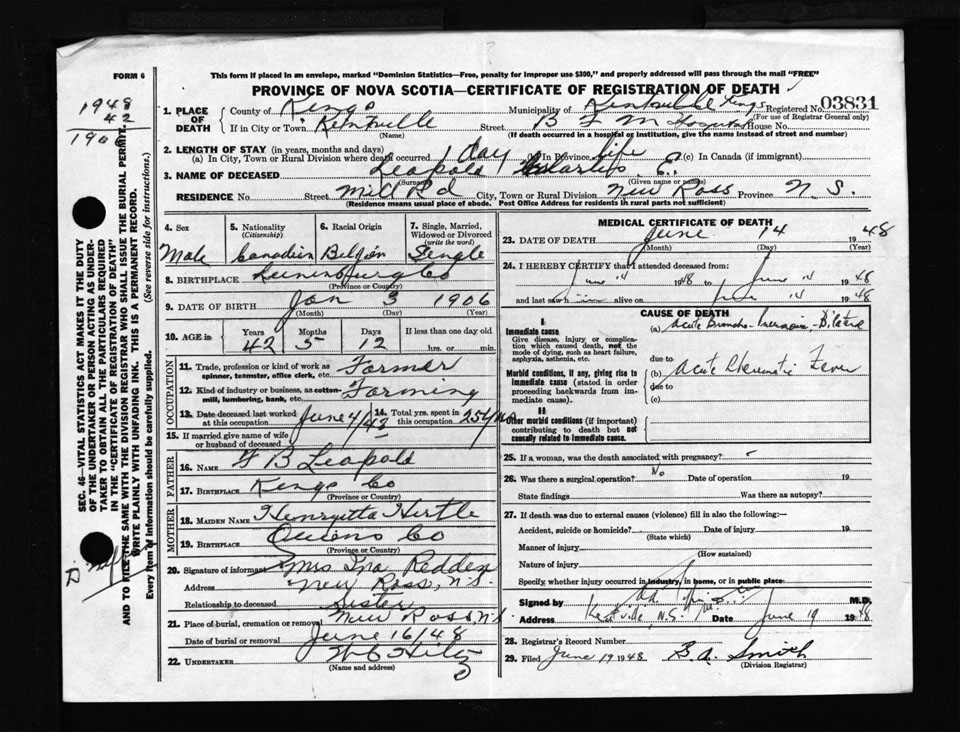 FORM 6
This form if placed in an envelope, marked "Dominion Statistics—Free, penalty for improper use $300," and properly addressed will pass through the mail "FREE"
PROVINCE OF NOVA SCOTIA—CERTIFICATE OF REGISTRATION OF DEATH
1948
42
1906
1. PLACE OF DEATH County of Kings Municipality of Kentville Kings Registered No. 03831
(For use of Registrar General only)
If in City or Town Kentville Street B F M Hospital House No.
(Name) (If death occurred in a hospital or institution, give the name instead of street and number)
2. LENGTH OF STAY (in years, months and days)
(a) In City, Town or Rural Division where death occurred 1 Day (b) In Province life (c) In Canada (if immigrant)
3. NAME OF DECEASED Leopold Charles E.
(Surname) (Given name or names)
RESIDENCE No. Street Mill Rd City, Town or Rural Division New Ross Province N.S.
(Residence means usual place of abode. Post Office Address for residents in rural parts not sufficient)
4. Sex 5. Nationality (Citizenship) 6. Racial Origin 7. Single, Married, Widowed or Divorced (write the word)
Male Canadian Belgian Single
8. BIRTHPLACE Lunenburg Co
(Province or Country)
9. DATE OF BIRTH Jan 3 1906
(Month) (Day) (Year)
10. AGE in Years Months Days If less than one day old
42 5 12 hrs. or min.
OCCUPATION
11. Trade, profession or kind of work as spinner, teamster, office clerk, etc. Farmer
12. Kind of industry or business, as cotton-mill, lumbering, bank, etc. Farming
13. Date deceased last worked at this occupation June 4/43 14. Total yrs. spent in this occupation 25 yrs
15. If married give name of wife or husband of deceased
FATHER
16. NAME F B Leopold
17. BIRTHPLACE Kings Co
(Province or Country)
MOTHER
18. MAIDEN NAME Henryetta Hirtle
19. BIRTHPLACE Queens Co
(Province or Country)
20. Signature of informant Mrs Ina Redden
Address New Ross, N.S.
Relationship to deceased Sister
21. Place of burial, cremation or removal New Ross N.S
Date of burial or removal June 16/48
22. UNDERTAKER W C Hiltz
(Name and address)
MEDICAL CERTIFICATE OF DEATH
23. DATE OF DEATH June 14 1948
(Month) (Day) (Year)
24. I HEREBY CERTIFY that I attended deceased from:
June 14 1948 to June 14 1948
and last saw him alive on June 14 1948
CAUSE OF DEATH
I.
Immediate cause
Give disease, injury or complication which caused death, not the mode of dying, such as heart failure, asphyxia, asthenia, etc.
(a) Acute Broncho-Pneumonia - Bilateral
due to
Morbid conditions, if any, giving rise to immediate cause (stated in order proceeding backwards from immediate cause).
(b) Acute Rheumatic Fever
due to
(c)
II
Other morbid conditions (if important) contributing to death but not causally related to immediate cause.
25. If a woman, was the death associated with pregnancy? -
26. Was there a surgical operation? No Date of operation 19
State findings Was there an autopsy?
27. If death was due to external causes (violence) fill in also the following:—
Accident, suicide or homicide? Date of injury 19
(State which)
Manner of injury
(How sustained)
Nature of injury
Specify, whether injury occurred in industry, in home, or in public place
Signed by M.D.
Address Kentville, N.S. Date June 19 1948
28. Registrar's Record Number
29. Filed June 19 1948 B. A. Smith
(Division Registrar)
SEC. 46—VITAL STATISTICS ACT MAKES IT THE DUTY
OF THE UNDERTAKER OR PERSON ACTING AS UNDERTAKER TO OBTAIN ALL THE PARTICULARS REQUIRED
IN THE "CERTIFICATE OF REGISTRATION OF DEATH"
AND TO FILE THE SAME WITH THE DIVISION REGISTRAR WHO SHALL ISSUE THE BURIAL PERMIT.
WRITE PLAINLY WITH UNFADING INK. THIS IS A PERMANENT RECORD.
Every item of information should be carefully supplied. (See reverse side for instructions.)